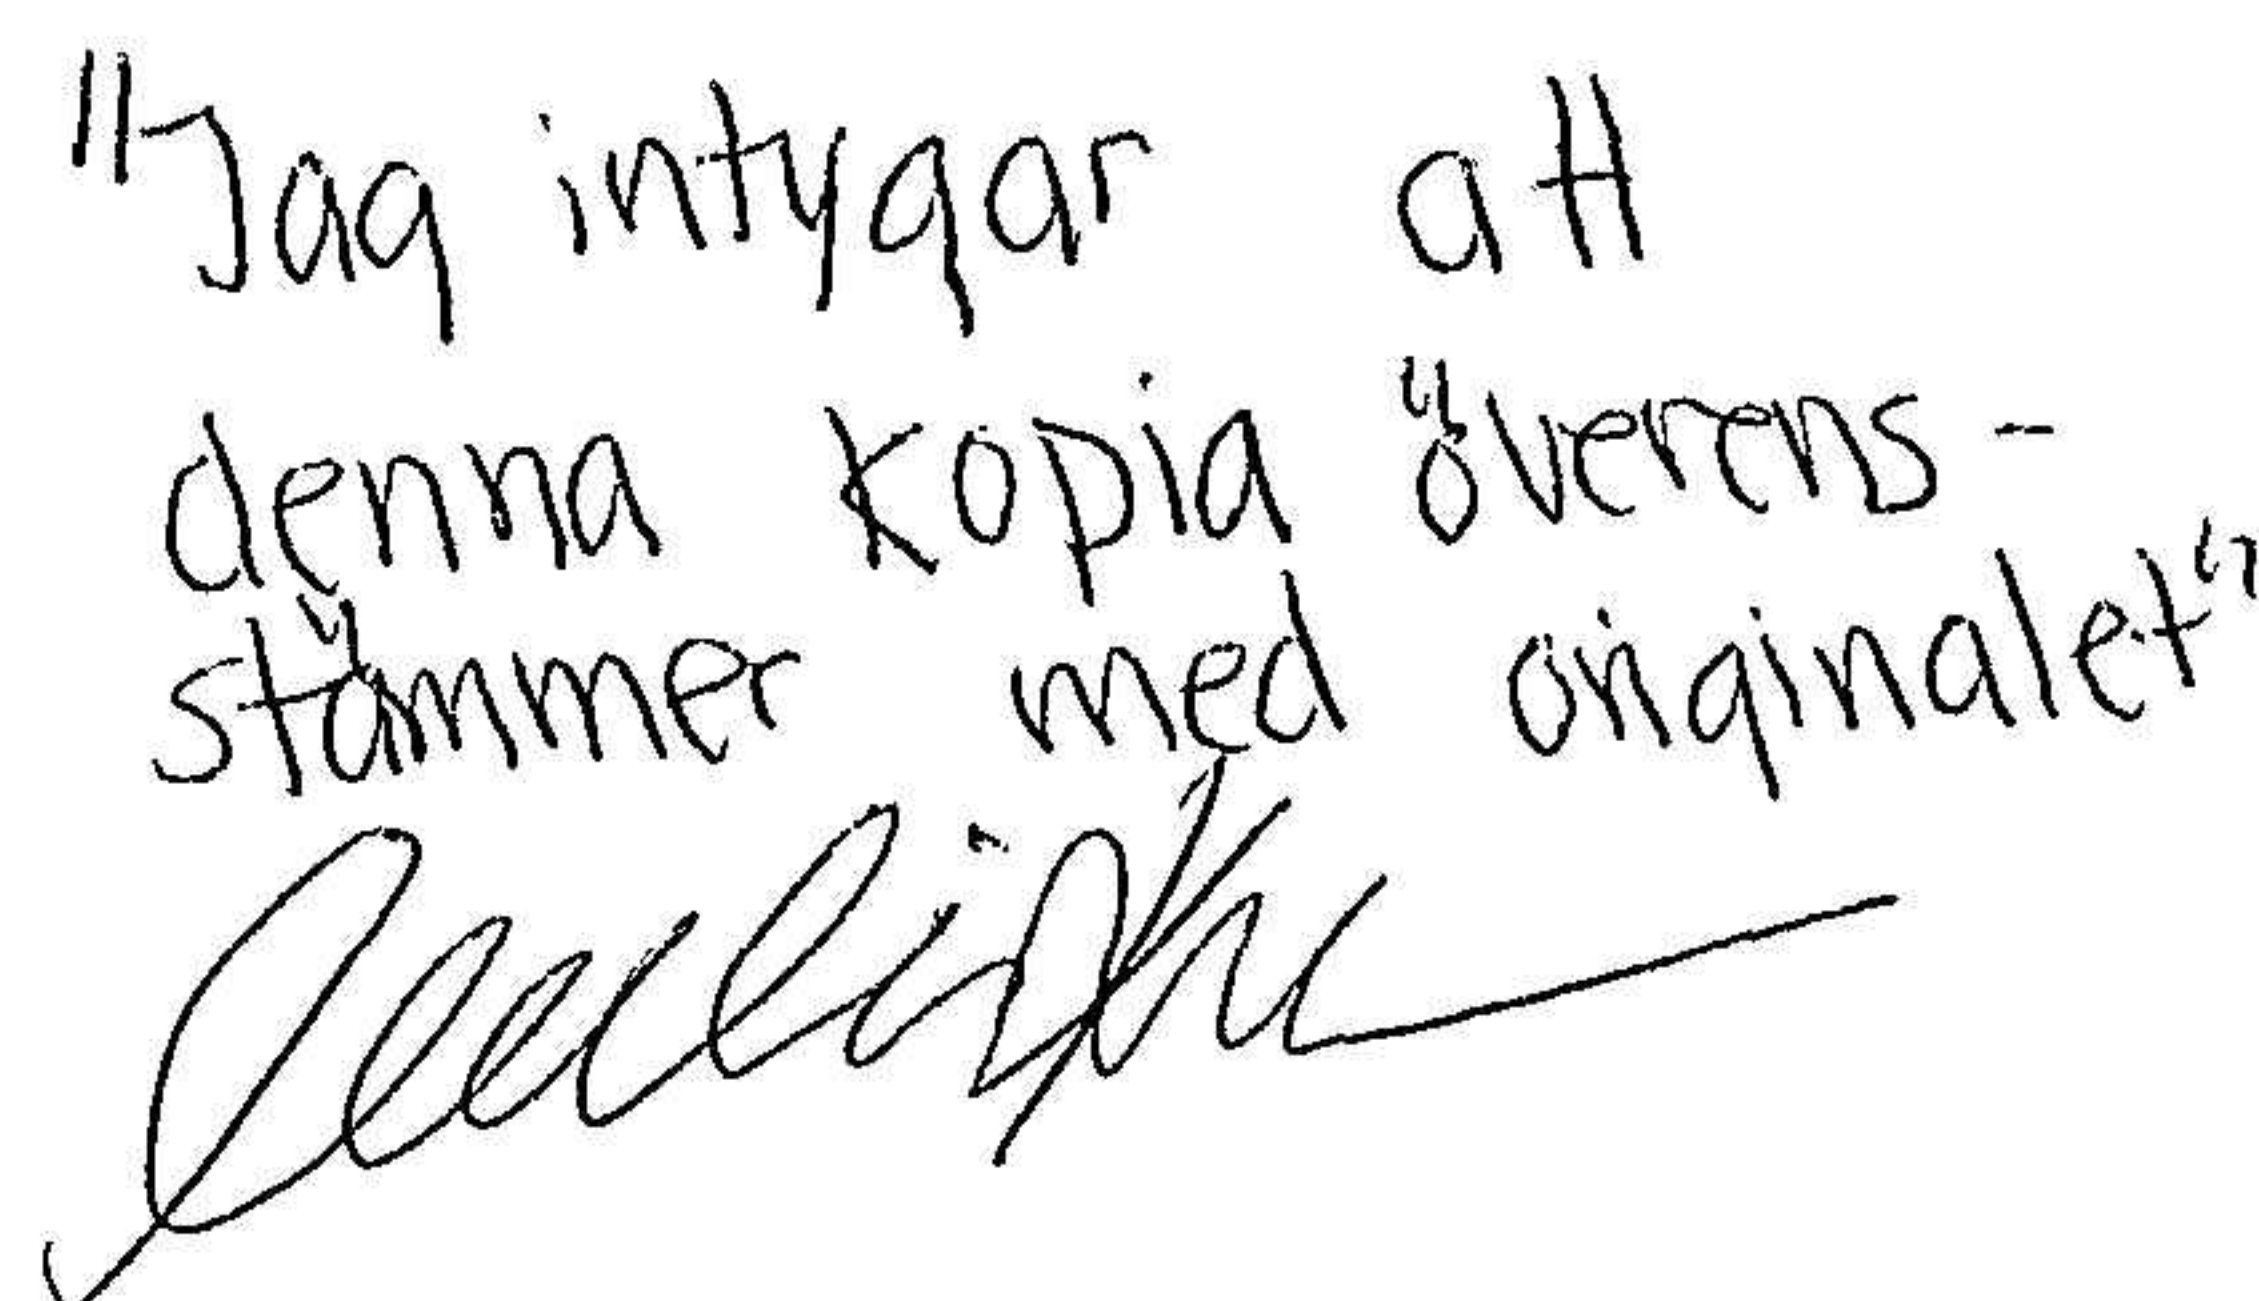 "Jag intygar att
denna kopia överens-
stämmer med originalet"